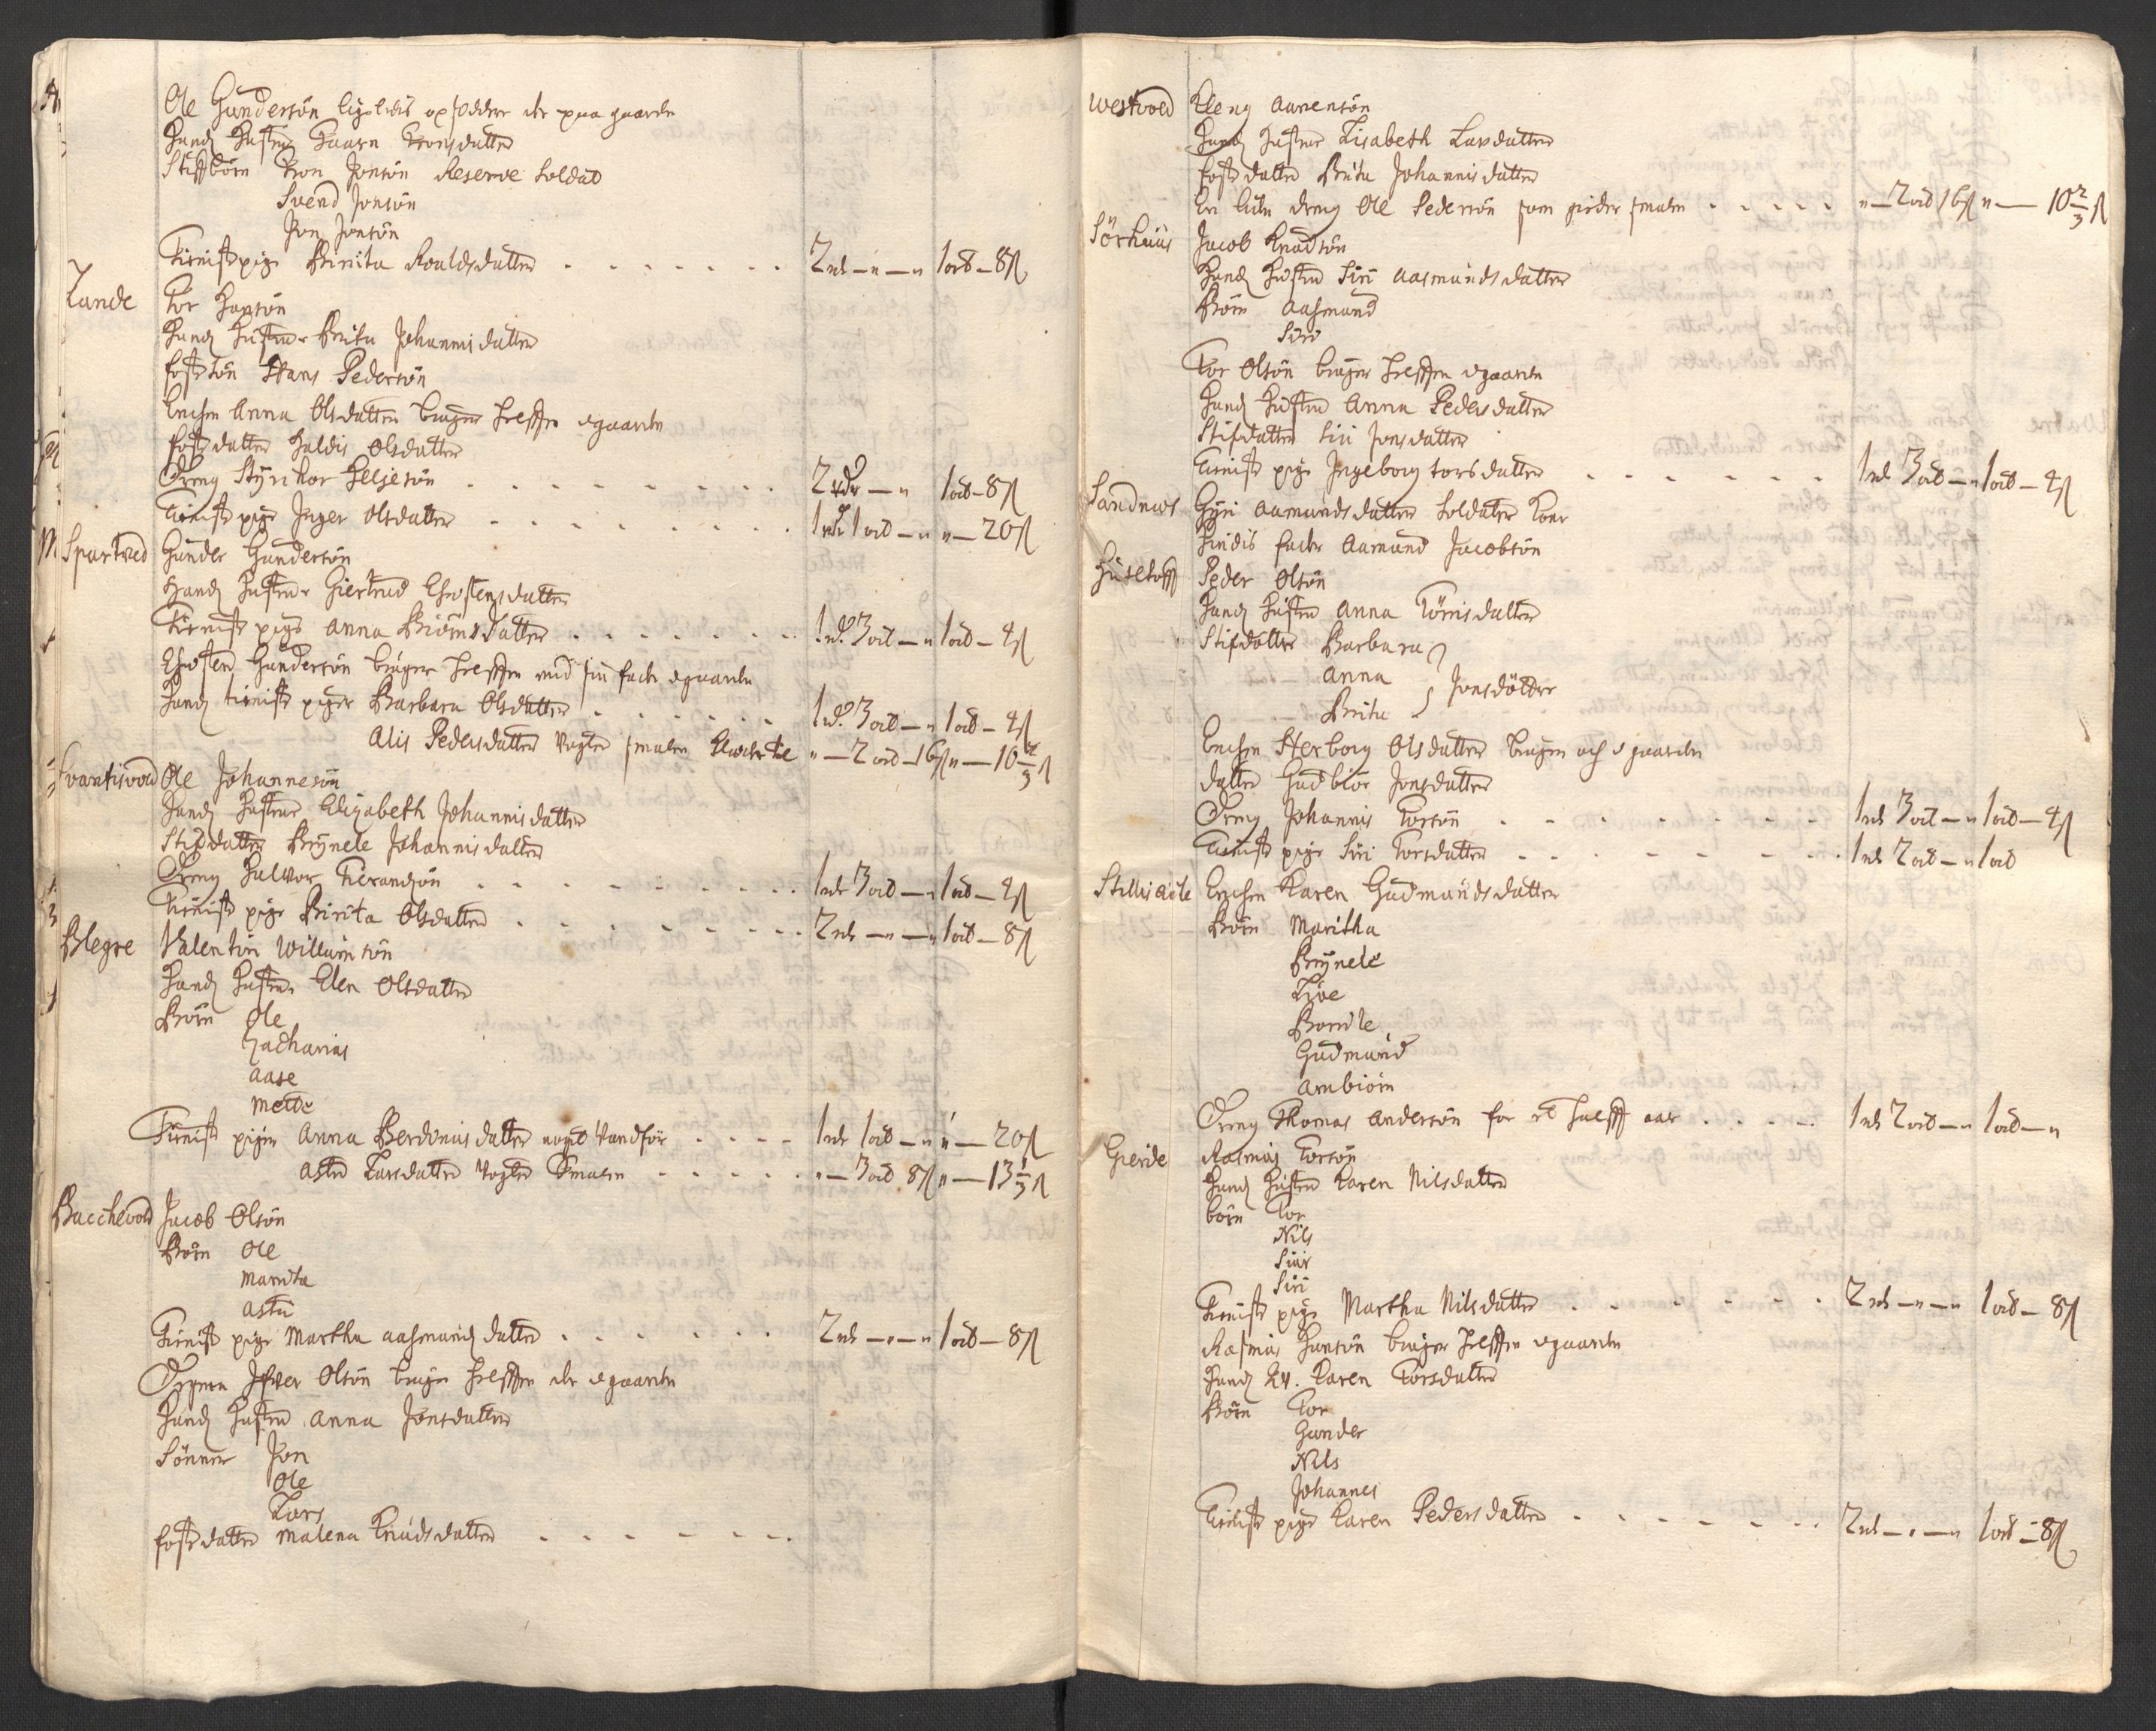 Ole Gundersön ligeledis opsidder der paa gaarden
Hands Hustrue Kaarn Tronsdatter
Stiffbörn Tron Jonsön Reserve Soldat
Svend Jonsön
Jon Jonsön
Tienistpige Birrita Roaldsdatter . . . . . . . 2 rdr – " – " 1 ort – 8 ß
Lande Tor Hansön
Hands Hustrue Brita Johannisdatter
fostersön Hans Pedersön
Enchen Anna Olsdatter bruger helfften i gaarden
fosterdatter Haldis Olsdatter
Dreng Styrchor Heljesön . . . . . . . 2 rdr – " 1 ort – 8 ß
Tieniste pige Inger Olsdatter . . . . . . . 1 rdr 1 ort – " " – 20 ß
Spartved Gunder Gundersön
Hands Hustrue Giertrud Chostensdatter
Tieniste pige Anna Biörnsdatter . . . . . . . 1 rd 3 ort – " 1 ort – 4 ß
Chosten Gundersön bruger helfften med sin fader i gaarden
Hands tieniste piger Barbara Olsdatter . . . . . . . 1 rd 3 ort – " 1 ort – 4 ß
Alis Pedersdatter vogter smalen " – 2 ort – 16 ß " – 10 2/3 ß
Tvantisvod Ole Johannesön
Hands Hustrue Elizabeth Johannisdatter
Stifdatter Brynele Johannisdatter
Dreng Halvor Tierandsön . . . . . . . 1 rdr 3 ort – " 1 ort – 4 ß
Tieniste pige Birita Olsdatter . . . . . . . 2 rdr – " – " 1 ort – 8 ß
Blegre Valentin Willumsön
Hands Hustrue Elen Olsdatter
Börn Ole
Zacharias
Aase
Mette
Tieniste pigen Anna Berdinusdatter noget Vandför . . . . 1 rdr 1 ort – " " – 20 ß
Astri Larsdatter vogter Smalen . . . . . " – 3 ort 8 ß " – 13 1/3 ß
Bacchevold Jacob Olsön
Börn Ole
Marita
Astri
Tieniste pige Martha Aasmundsdatter . . . . . . . 2 rdr – " – " 1 ort – 8 ß
Iffver Olsön bruger helfften der i gaarden
Hands Hustrue Anna Jonsdatter
Sönner Jon
Ole
Lars
foster datter Malena Knudsdatter . . . . . . .
Westvold Eleng Aanensön
Hands Hustrue Lisabeth Larsdatter
foster datter Brita Johannisdatter
En liden dreng Ole Pedersön som gieder smalen . . . . . " – 2 ort 16 ß " – 10 2/3 ß
Sörhuus Jacob Knudsön
Hands Hustrue Siri Aasmundsdatter
Börn Aasmund
Siri
Tor Olsön bruger helfften i gaarden
Hands Hustrue Anna Pedersdatter
Stifdatter Siri Jonsdatter
Tieniste pige Ingeborg Torsdatter . . . . . . 1 rdr 3 ort – " 1 ort – 4 ß
Sandnæs Gyri Aamundsdatter Soldater Kone
Hindis fader Aamund Jacobsön
Husetofft Peder Olsön
Hands Hustrue Anna Törrisdatter
Stifdatter Barbara
Anna } Jonsdötder
Brita
Enchen Herborg Olsdatter bruger och i gaarden
datter Gudbior Jonsdatter
Dreng Johannis Torsön . . . . . . . 1 rdr 3 ort – " 1 ort – 4 ß
Tieniste pige Siri Torsdatter . . . . . . . 1 rdr 2 ort – " 1 ort
Enchen Karen Gudmundsdatter
Börn Maritha
Brynele
Live
Bornile
Gudmund
Arnbiörn
Dreng Thomas Andersön for et halff aar . . . . . 1 rdr 2 ort – " 1 ort – "
Gierde Rasmus Torsön
Hands Hustrue Karen Nilsdatter
börn Tor
Nils
Siur
Siri
Tieniste pige Martha Nilsdatter . . . . . . . 2 rdr – " – " 1 ort – 8 ß
Rasmus Hansön bruger helfften i gaarden
Hands Qv. Karen Torsdatter
Börn Tor
Gunder
Nils
Johannes
Tieniste pige Karen Pedersdatter . . . . . . . 2 rdr – " – " 1 ort – 8 ß